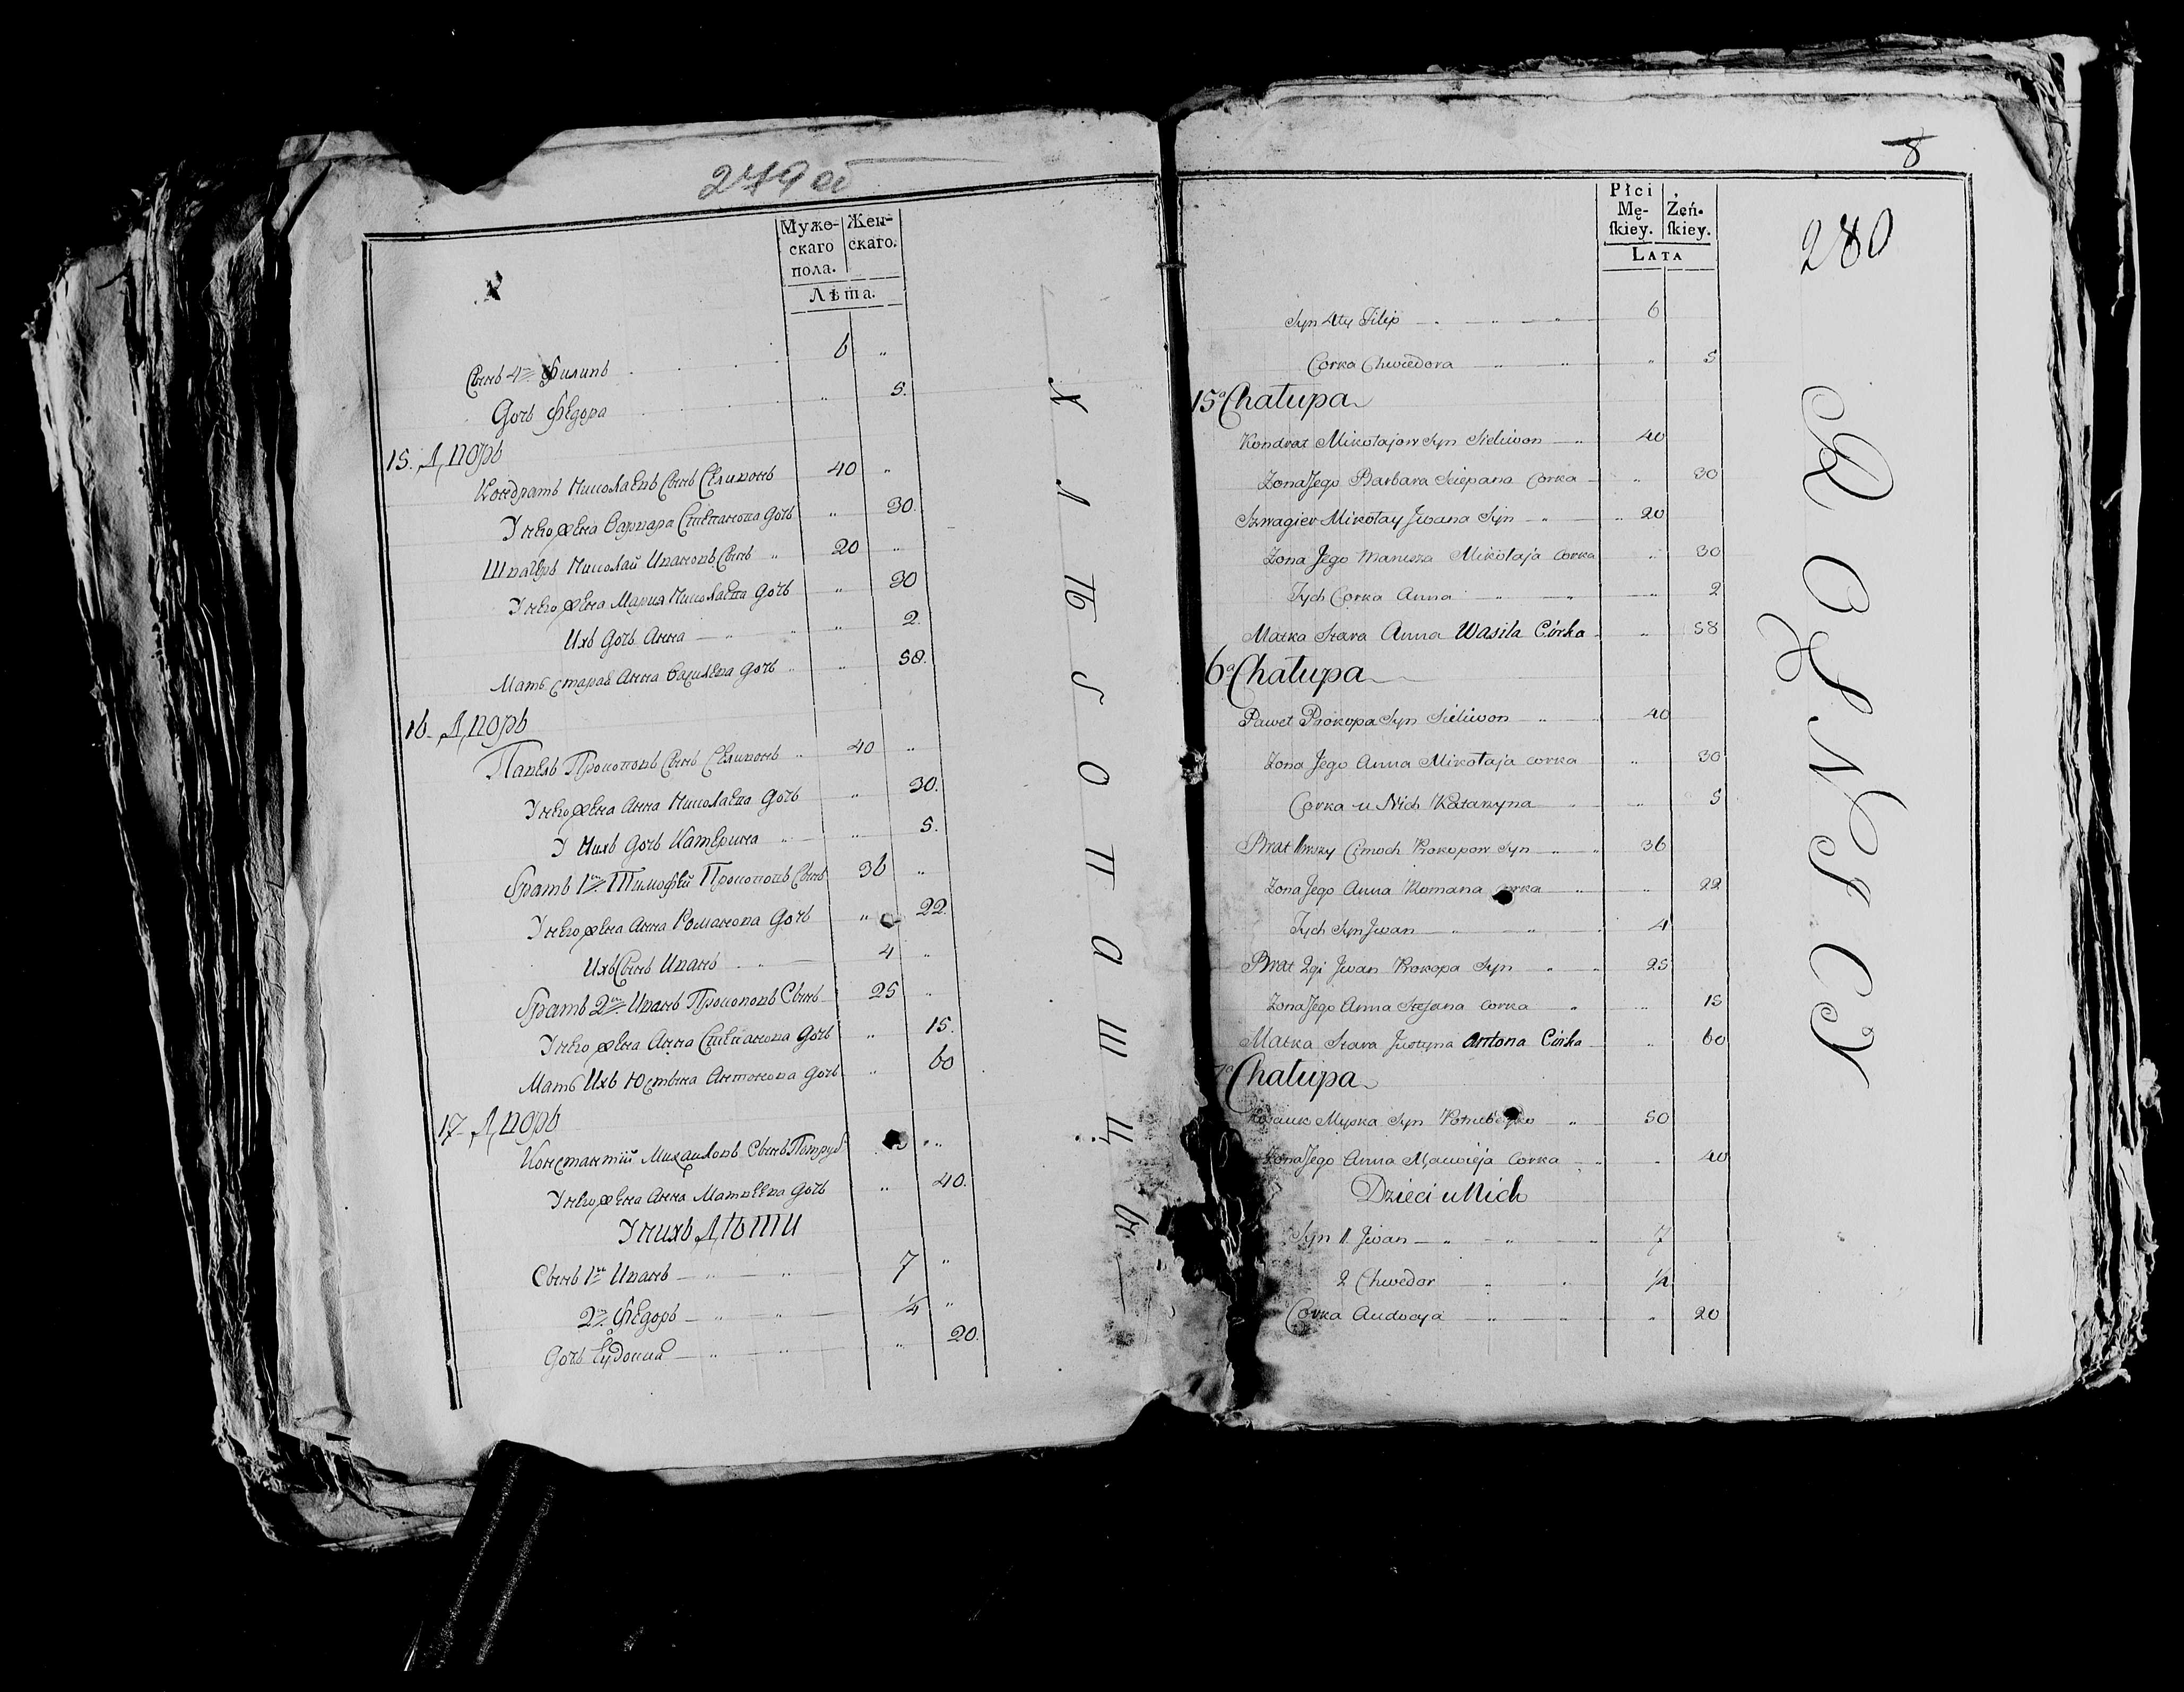 279 об
Муже-
скаго
пола.
Жен-
скаго.
Лѣта.
Сынъ 4й Филипъ 6 „
Дочь Федора „ 5.
15. Дворъ
Кондратъ Николаевъ Сынъ Селивонъ 40 „
У него жена Варвара Степанова дочь „ 30.
Швагеръ Николай Ивановъ Сынъ „ 20 „
У него жена Мария Николаева дочь „ 30
Ихъ дочь Анна „ 2.
Мать старая Анна Василева дочь „ 58.
16. Дворъ
Павелъ Прокоповъ Сынъ Селивонъ „ 40 „
У него жена Анна Николаева дочь „ 30.
У Нихъ дочь Катерина „ 5.
Братъ 1й Тимофей Прокоповъ Сынъ 36 „
У него жена Анна Романова дочь „ 22.
Ихъ Сынъ Иванъ 4 „
Братъ 2й Иванъ Прокоповъ Сынъ 25 „
У него жена Анна Степанова дочь „ 15.
Мать Ихъ Юстына Антонова дочь „ 60
17. Дворъ
Константій Михаиловъ Сынъ Потруб „
У него жена Анна Матвеева дочь „ 40.
У нихъ Дѣти
Сынъ 1й Иванъ 7 „
2й Федоръ 1/4 „
Дочь Евдокия „ 20.
8
280
Płci
Mę-
ſkiey.
Żeń-
ſkiey.
LATA
Syn 4ty Filip 6
Corka Chwedora „ 5
15a Chałupa
Kondrat Mikołajow Syn Sieliwon 40
Zona Jego Barbara Sciepana Corka „ 30
Szwagier Mikołay Jwana Syn 20
Zona Jego Maruszka Mikołaja Corka „ 30
Tych Corka Anna „ 2
Matka Stara Anna Wasila Córka „ 58
6a Chałupa
Paweł Prokopa Syn Sieliwon 40
Zona Jego Anna Mikołaja corka „ 30
Corka u Nich Katarzyna „ 5
Brat 1wszy Cimoch Prokopow Syn 36
Zona Jego Anna Romana corka „ 22
Tych Syn Jwan 4
Brat 2gi Jwan Prokopa Syn 25
Zona Jego Anna Stefana corka „ 15
Matka Stara Justyna Antona Córka „ 60
7a Chałupa
Syn 50
Zona Jego Anna Macwieja Corka „ 40
Dzieci u Nich
Syn 1 Jwan 7
2 Chwedor 1/4
Corka Audocya „ 20